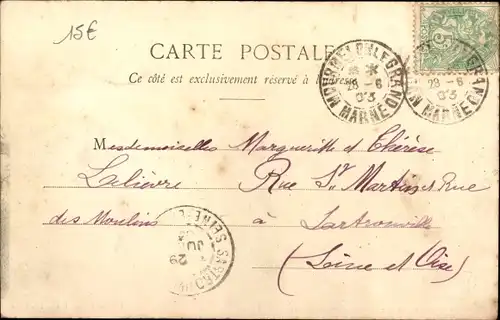 15€
CARTE POSTALE
Ce côté est exclusivement réservé à l'adresse
MOURMELON LE GRAND
28 - 6
03
MARNE
28 - 6
03
MARNE
5
Mesdemoiselles Marguerite et Thérèse
Lalièvre Rue St Martin et Rue
des Moulins à Sartrouville
(Seine et Oise)
29
SARTROUV
SEINE